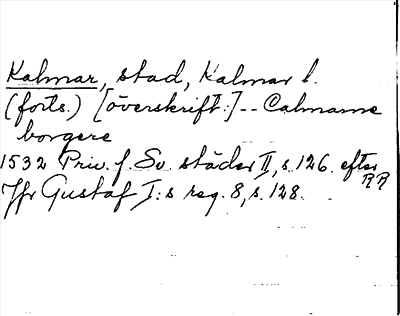 Kalmar, stad, Kalmar l.
(forts.) [överskrift:] -- Calmarne
borgere
1532 Priv. f. Sv. städer II, s. 126. efter
RR
Jfr Gustaf I:s reg. 8, s. 128.